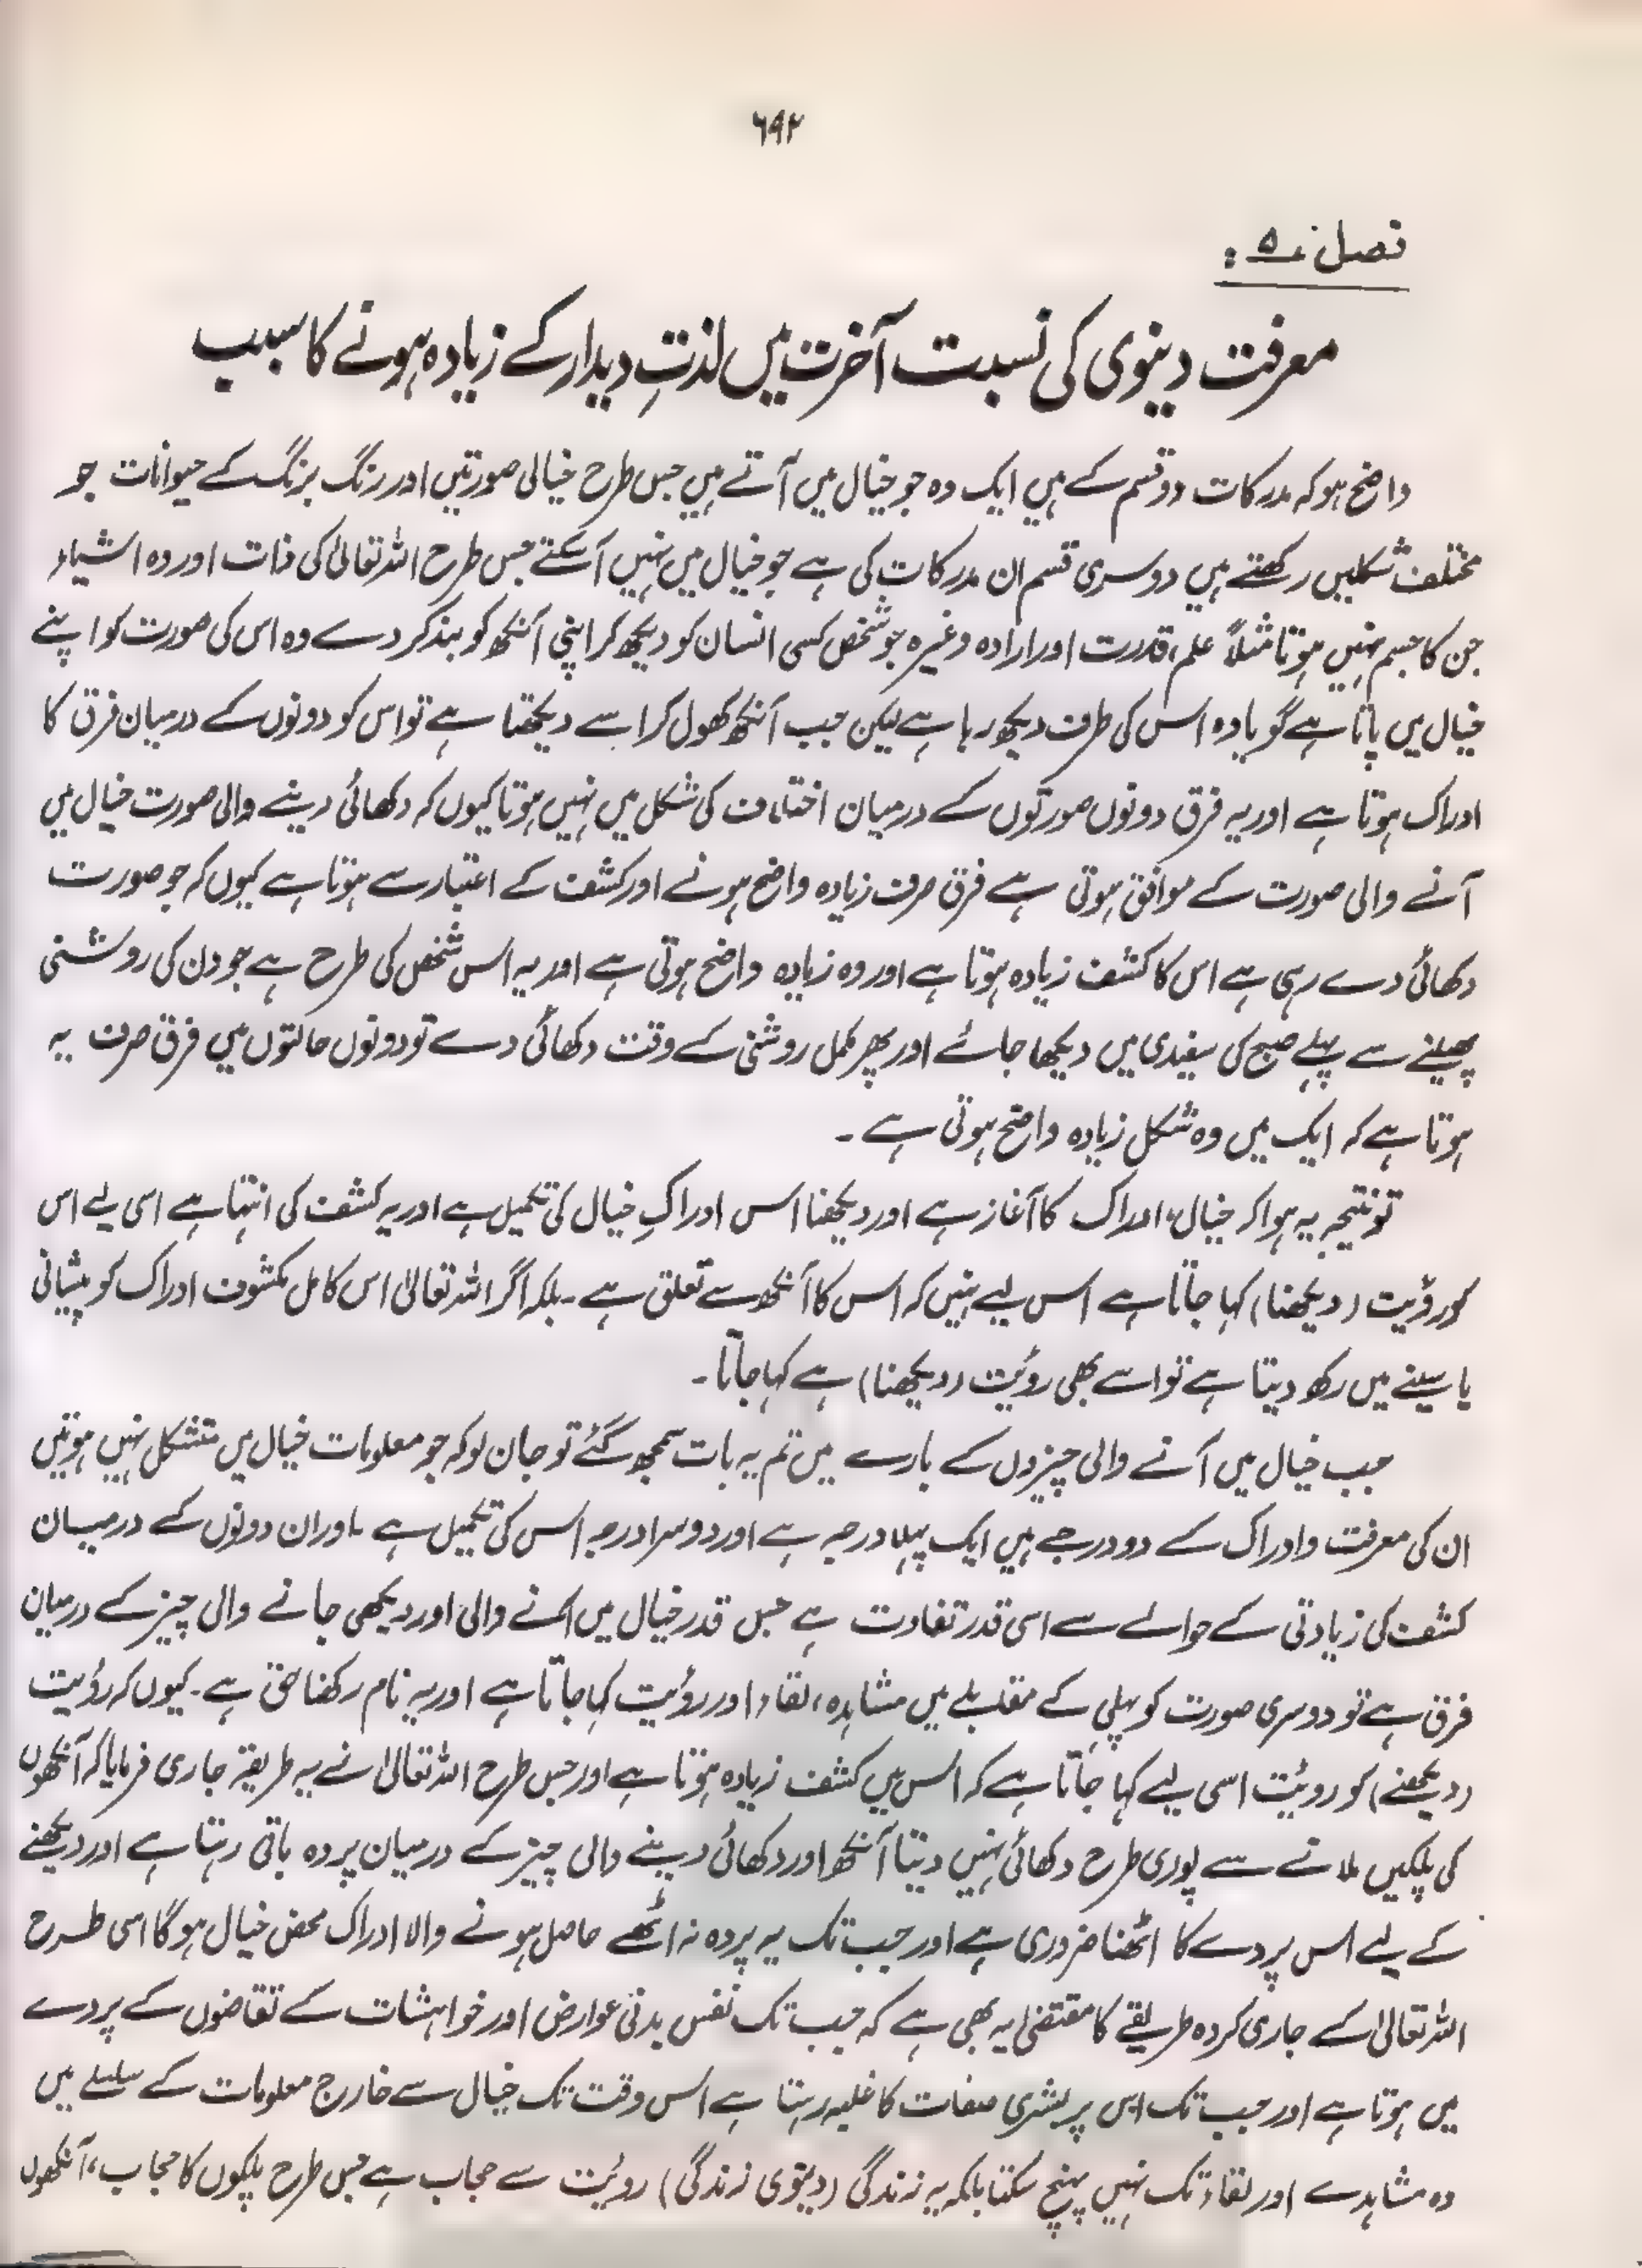 ۶۹۲
فصل ۵ :
معرفت دینوی کی نسبت آخرت میں لذتِ دیدار کے زیادہ ہونے کا سبب
واضح ہو کہ مدرکات دو قسم کے ہیں ایک وہ جو خیال میں آتے ہیں جس طرح خیالی صورتیں اور رنگ برنگ کے حیوانات جو
مختلف شکلیں رکھتے ہیں دوسری قسم ان مدرکات کی ہے جو خیال میں نہیں آ سکتے جس طرح اللہ تعالیٰ کی ذات اور وہ اشیاء
جن کا جسم نہیں ہوتا مثلاً علم، قدرت اور ارادہ وغیرہ جو شخص کسی انسان کو دیکھ کر اپنی آنکھ کو بند کر دے وہ اس کی صورت کو اپنے
خیال میں پاتا ہے گویا وہ اس کی طرف دیکھ رہا ہے لیکن جب آنکھ کھول کر اسے دیکھتا ہے تو اس کو دونوں کے درمیان فرق کا
ادراک ہوتا ہے اور یہ فرق دونوں صورتوں کے درمیان اختلاف کی شکل میں نہیں ہوتا کیوں کہ دکھائی دینے والی صورت خیال میں
آنے والی صورت کے موافق ہوتی ہے فرق صرف زیادہ واضح ہونے اور کشف کے اعتبار سے ہوتا ہے کیوں کہ جو صورت
دکھائی دے رہی ہے اس کا کشف زیادہ ہوتا ہے اور وہ زیادہ واضح ہوتی ہے اور یہ اس شخص کی طرح ہے جو دن کی روشنی
پھیلنے سے پہلے صبح کی سفیدی میں دیکھا جائے اور پھر مکمل روشنی کے وقت دکھائی دے تو دونوں حالتوں میں فرق صرف یہ
ہوتا ہے کہ ایک میں وہ شکل زیادہ واضح ہوتی ہے ۔
تو نتیجہ یہ ہوا کہ خیال، ادراک کا آغاز ہے اور دیکھنا اس ادراکِ خیال کی تکمیل ہے اور یہ کشف کی انتہا ہے اسی لیے اس
کو رؤیت (دیکھنا) کہا جاتا ہے اس لیے نہیں کہ اس کا آنکھ سے تعلق ہے ۔ بلکہ اگر اللہ تعالیٰ اس کامل مکشوف ادراک کو پیشانی
یا سینے میں رکھ دیتا ہے تو اسے بھی رویٔت (دیکھنا) ہے کہا جاتا ۔
جب خیال میں آنے والی چیزوں کے بارے میں تم یہ بات سمجھ گئے تو جان لو کہ جو معلومات خیال میں متشکل نہیں ہوتیں
ان کی معرفت و ادراک کے دو درجے ہیں ایک پہلا درجہ ہے اور دوسرا درجہ اس کی تکمیل ہے ۔ اور ان دونوں کے درمیان
کشف کی زیادتی کے حوالے سے اسی قدر تفاوت ہے جس قدر خیال میں آنے والی اور دیکھی جانے والی چیز کے درمیان
فرق ہے تو دوسری صورت کو پہلی کے مقابلے میں مشاہدہ، لقاء اور روئیت کہا جاتا ہے اور یہ نام رکھنا حق ہے ۔ کیوں کہ رؤیت
(دیکھنے) کو رویٔت اسی لیے کہا جاتا ہے کہ اس میں کشف زیادہ ہوتا ہے اور جس طرح اللہ تعالیٰ نے یہ طریقہ جاری فرمایا کہ آنکھوں
کی پلکیں ملانے سے پوری طرح دکھائی نہیں دیتا آنکھ اور دکھائی دینے والی چیز کے درمیان پردہ باقی رہتا ہے اور دیکھنے
کے لیے اس پردے کا اٹھنا ضروری ہے اور جب تک یہ پردہ نہ اٹھے حاصل ہونے والا ادراک محض خیال ہو گا اسی طرح
اللہ تعالیٰ کے جاری کردہ طریقے کا مقتضیٰ یہ بھی ہے کہ جب تک نفس بدنی عوارض اور خواہشات کے تقاضوں کے پردے
میں ہوتا ہے اور جب تک اس پر بشری صفات کا غلبہ رہتا ہے اس وقت تک خیال سے خارج معلومات کے سلسلے میں
وہ مشاہدے اور لقاء تک نہیں پہنچ سکتا بلکہ یہ زندگی (دینوی زندگی) رویٔت سے حجاب ہے جس طرح پلکوں کا حجاب، آنکھوں